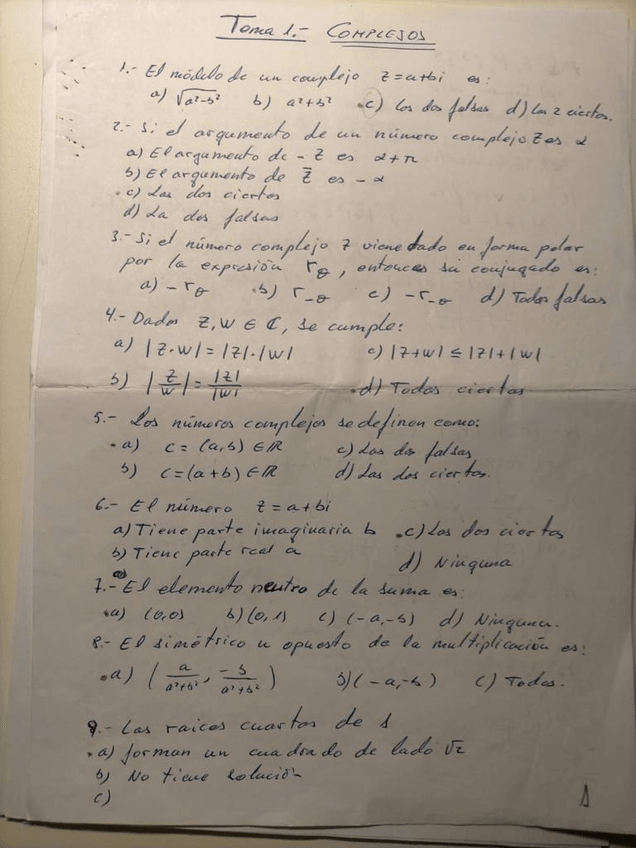 Tema 1.- COMPLEJOS
1.- El módulo de un complejo z=a+bi es:
a) √a²-b² b) a²+b² .c) Las dos falsas d) Las 2 ciertas.
2.- Si el argumento de un número complejo z es α
a) El argumento de -z es α+π
b) El argumento de z̄ es -α
.c) Las dos ciertas
d) La dos falsas
3.- Si el número complejo z viene dado en forma polar
por la expresión r_θ, entonces su conjugado es:
a) -r_θ .b) r_-θ c) -r_-θ d) Todas falsas
4.- Dados z, w ∈ ℂ, se cumple:
a) |z·w| = |z|·|w| c) |z+w| ≤ |z|+|w|
b) |z/w| = |z|/|w| .d) Todas ciertas
5.- Los números complejos se definen como:
.a) c = (a,b) ∈ ℝ c) Las dos falsas
b) c=(a+b) ∈ ℝ d) Las dos ciertas.
6.- El número z=a+bi
a) Tiene parte imaginaria b .c) Las dos ciertas
b) Tiene parte real a d) Ninguna
7.- El elemento neutro de la suma es:
.a) (0,0) b) (0,1) c) (-a,-b) d) Ninguna.
8.- El simétrico u opuesto de la multiplicación es:
.a) (a/a²+b², -b/a²+b²) b) (-a,-b) c) Todas.
9.- Las raices cuartas de 1
.a) forman un cuadrado de lado √2
b) No tiene solución
c)
1